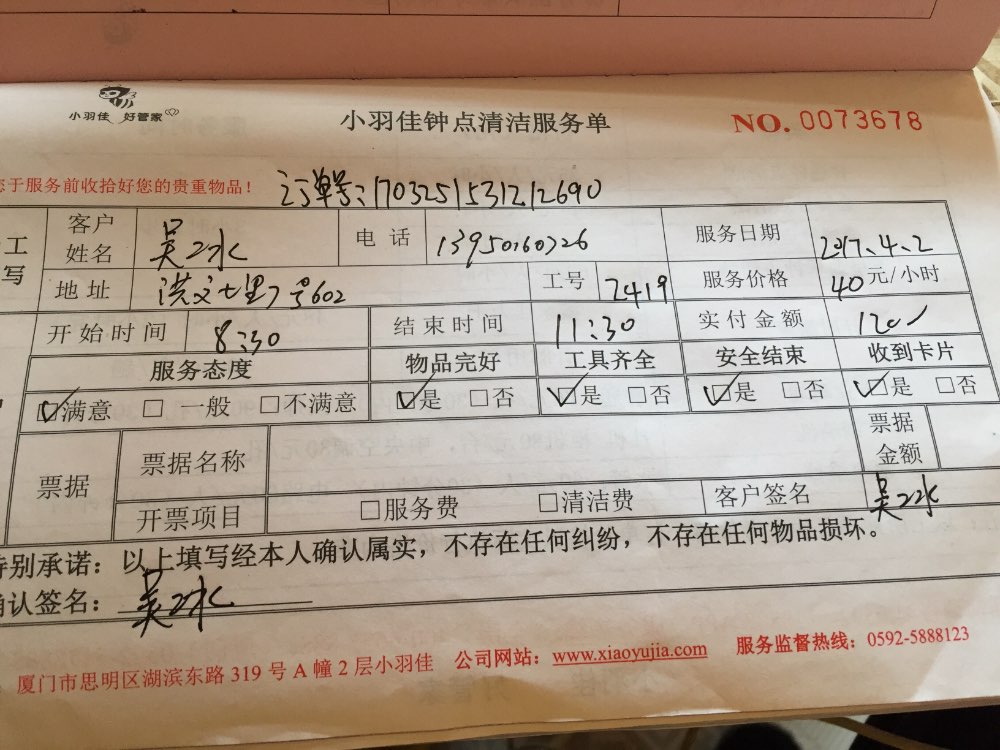 小羽佳 好管家
小羽佳钟点清洁服务单
NO. 0073678
您于服务前收拾好您的贵重物品！
订单号：1703251531212690
工 客户姓名 吴冰 电话 13950160726 服务日期 2017.4.2
写 地址 洪文七里7号602 工号 2419 服务价格 40元/小时
开始时间 8:30 结束时间 11:30 实付金额 120
服务态度 物品完好 工具齐全 安全结束 收到卡片
☑满意 □一般 □不满意 ☑是 □否 ☑是 □否 ☑是 □否 ☑是 □否
票据 票据名称 票据金额
开票项目 □服务费 □清洁费 客户签名 吴冰
特别承诺：以上填写经本人确认属实，不存在任何纠纷，不存在任何物品损坏。
确认签名：吴冰
厦门市思明区湖滨东路 319 号 A 幢 2 层小羽佳 公司网站：www.xiaoyujia.com 服务监督热线：0592-5888123